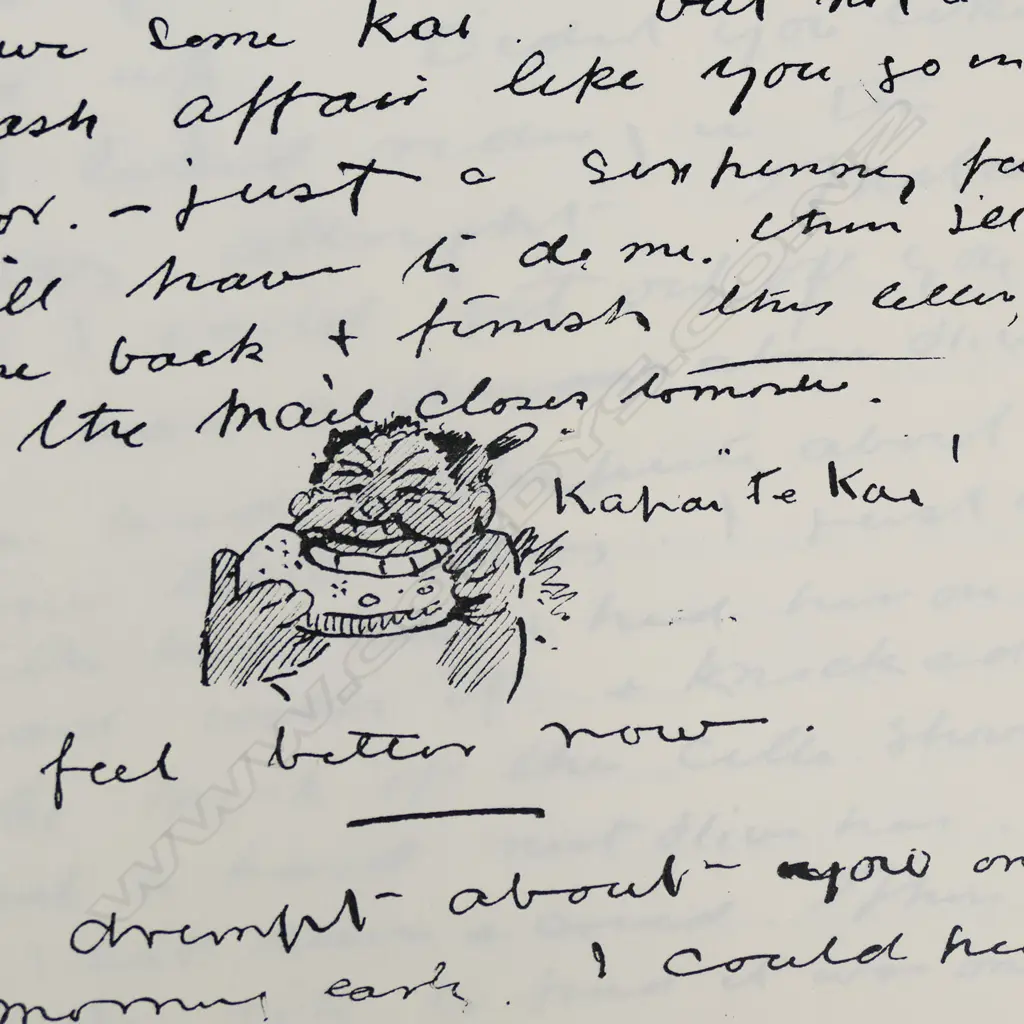 some kai. but not a
ash affair like you go in
or. - just a sixpenny
ill have to do me. then I'll
back + finish this letter,
the mail closes tomorrow.
"Kapai te Kai!
feel better now.
drempt about you on
morning early. I could
WWW.CORDYS.CO.NZ